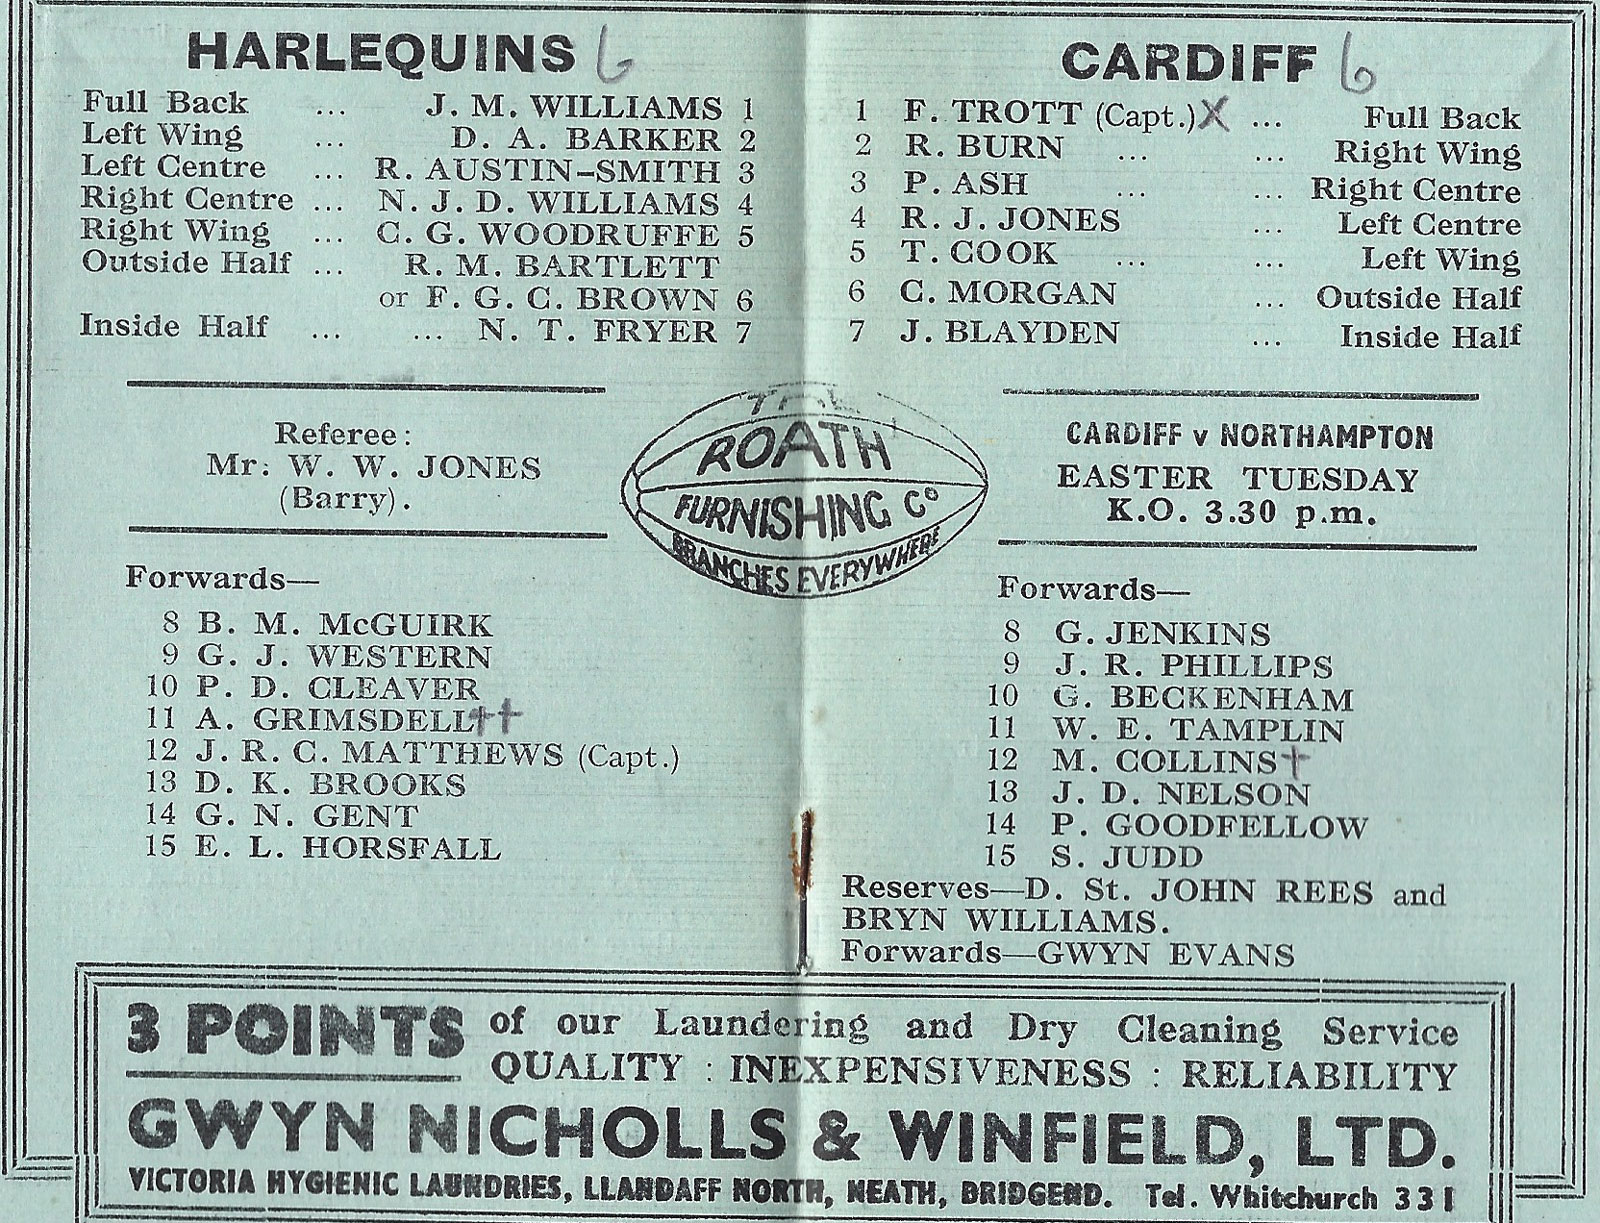 HARLEQUINS 6
Full Back ... J. M. WILLIAMS 1
Left Wing ... D. A. BARKER 2
Left Centre ... R. AUSTIN-SMITH 3
Right Centre ... N. J. D. WILLIAMS 4
Right Wing ... C. G. WOODRUFFE 5
Outside Half ... R. M. BARTLETT
or F. G. C. BROWN 6
Inside Half ... ... N. T. FRYER 7
Referee:
Mr: W. W. JONES
(Barry).
Forwards—
8 B. M. McGUIRK
9 G. J. WESTERN
10 P. D. CLEAVER
11 A. GRIMSDELL++
12 J. R. C. MATTHEWS (Capt.)
13 D. K. BROOKS
14 G. N. GENT
15 E. L. HORSFALL
ROATH
FURNISHING Co
BRANCHES EVERYWHERE
CARDIFF 6
1 F. TROTT (Capt.) X ... Full Back
2 R. BURN ... ... Right Wing
3 P. ASH ... ... Right Centre
4 R. J. JONES ... Left Centre
5 T. COOK ... ... Left Wing
6 C. MORGAN ... Outside Half
7 J. BLAYDEN ... Inside Half
CARDIFF v NORTHAMPTON
EASTER TUESDAY
K.O. 3.30 p.m.
Forwards—
8 G. JENKINS
9 J. R. PHILLIPS
10 G. BECKENHAM
11 W. E. TAMPLIN
12 M. COLLINS+
13 J. D. NELSON
14 P. GOODFELLOW
15 S. JUDD
Reserves—D. St. JOHN REES and
BRYN WILLIAMS.
Forwards—GWYN EVANS
3 POINTS of our Laundering and Dry Cleaning Service
QUALITY : INEXPENSIVENESS : RELIABILITY
GWYN NICHOLLS & WINFIELD, LTD.
VICTORIA HYGIENIC LAUNDRIES, LLANDAFF NORTH, NEATH, BRIDGEND. Tel. Whitchurch 331